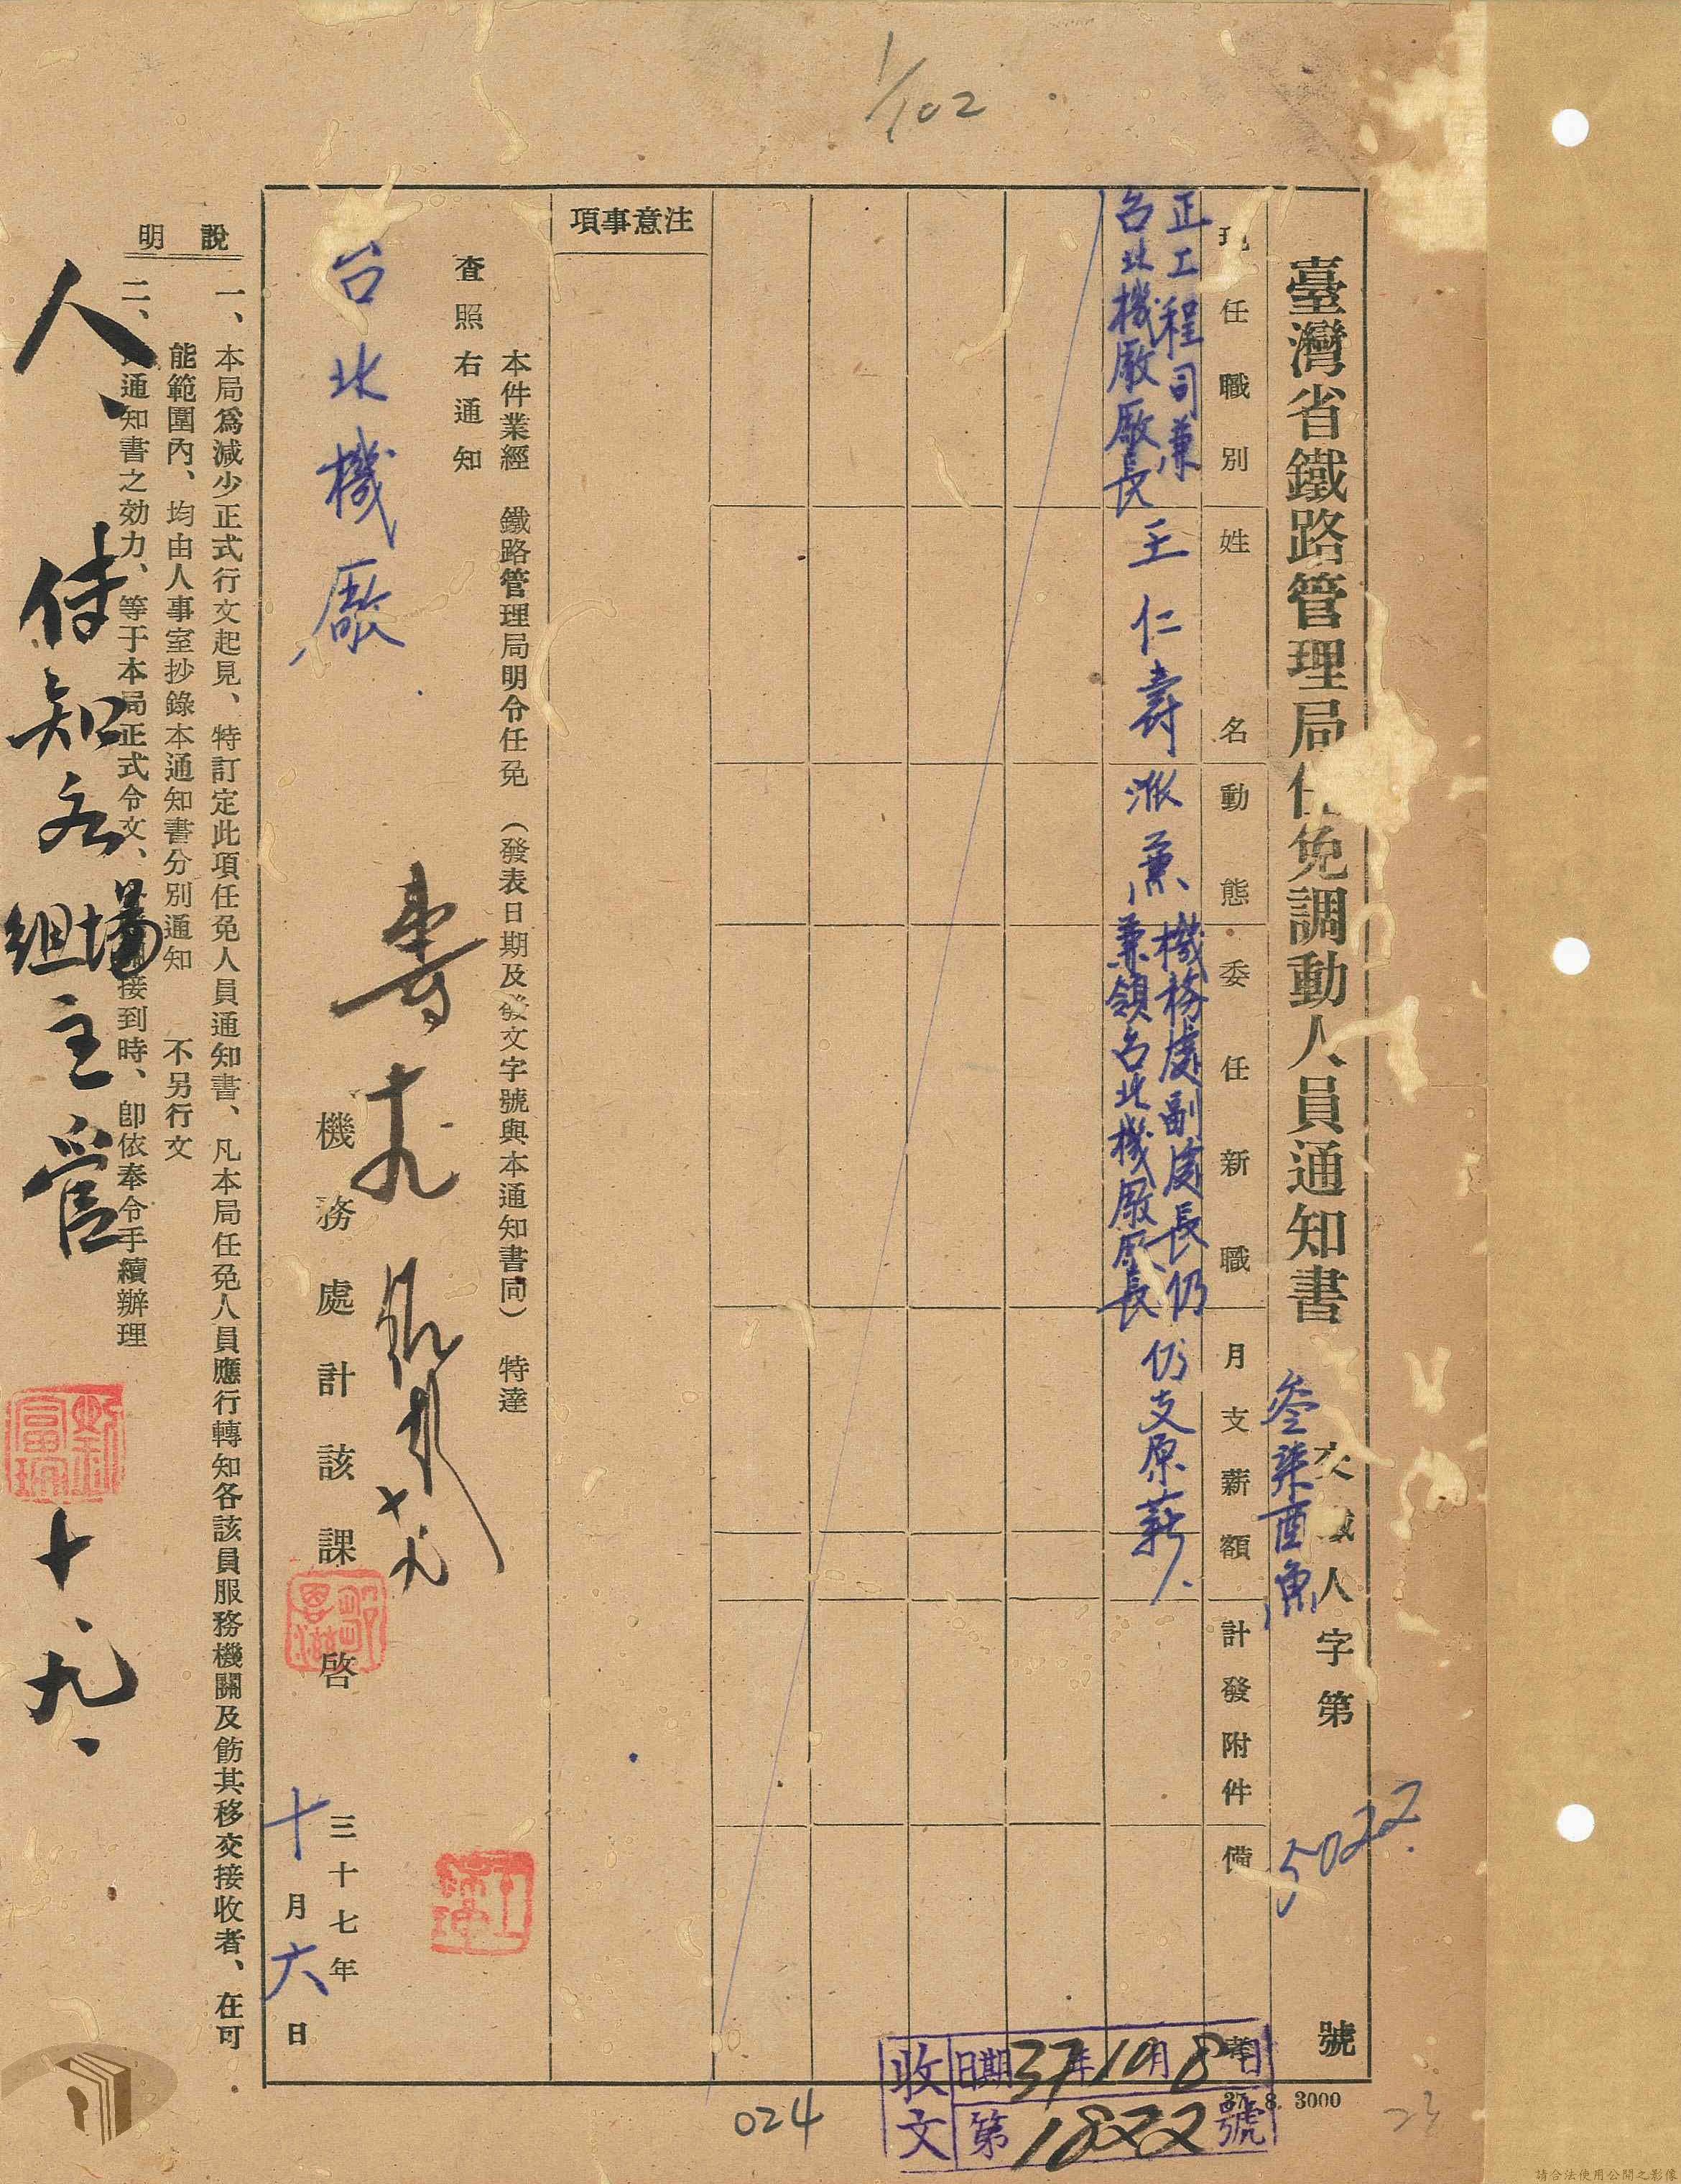 1/102
臺灣省鐵路管理局任免調動人員通知書
叁柒酉魚
交 人字第 5022 號
現任職別
姓名
動態
委任新職
月支薪額
計發附件
備考
正工程司兼
台北機廠廠長
王仁壽
派兼
機務處副處長仍
兼領台北機廠廠長
仍支原薪
注意事項
本件業經 鐵路管理局明令任免 (發表日期及發文字號與本通知書同) 特達
查照 右通知
台北機廠
機務處計該課啓
三十七年
十月六日
說明
一、本局爲減少正式行文起見、特訂定此項任免人員通知書、凡本局任免人員應行轉知各該員服務機關及飭其移交接收者、在可
能範圍內、均由人事室抄錄本通知書分別通知 不另行文
二、通知書之効力、等于本局正式令文、接到時、卽依奉令手續辦理
人、
知各場
組主管
十、九、
十九
收文 日期37年10月8日
第1822號
37. 8. 3000
024
23
請合法使用公開之影像